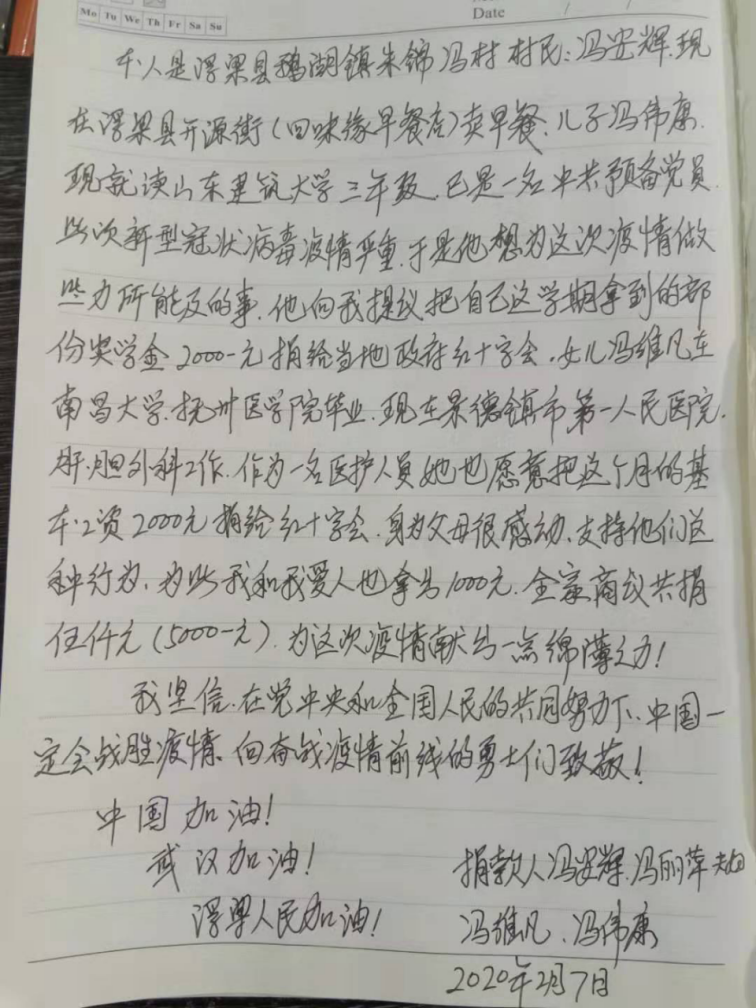 Mo Tu We Th Fr Sa Su
Date / /
本人是浮梁县鹅湖镇朱锦冯村村民:冯安辉.现
在浮梁县开源街(回味缘早餐店)卖早餐.儿子冯伟康.
现就读山东建筑大学三年级.已是一名中共预备党员.
此次新型冠状病毒疫情严重.于是他想为这次疫情做
些力所能及的事.他向我提议把自己这学期拿到的部
份奖学金2000-元捐给当地政府红十字会.女儿冯维凡在
南昌大学.抚州医学院毕业.现在景德镇市第一人民医院.
肝.胆外科工作.作为一名医护人员她也愿意把这个月的基
本工资2000元捐给红十字会.身为父母很感动.支持他们这
种行为.为此我和我爱人也拿出1000元.全家商议共捐
伍仟元(5000-元).为这次疫情献出一点绵薄之力!
我坚信.在党中央和全国人民的共同努力下.中国一
定会战胜疫情.向奋战疫情前线的勇士们致敬!
中国加油!
武汉加油!
捐款人冯安辉.冯丽萍夫妇
浮梁人民加油!
冯维凡.冯伟康
2020年2月7日